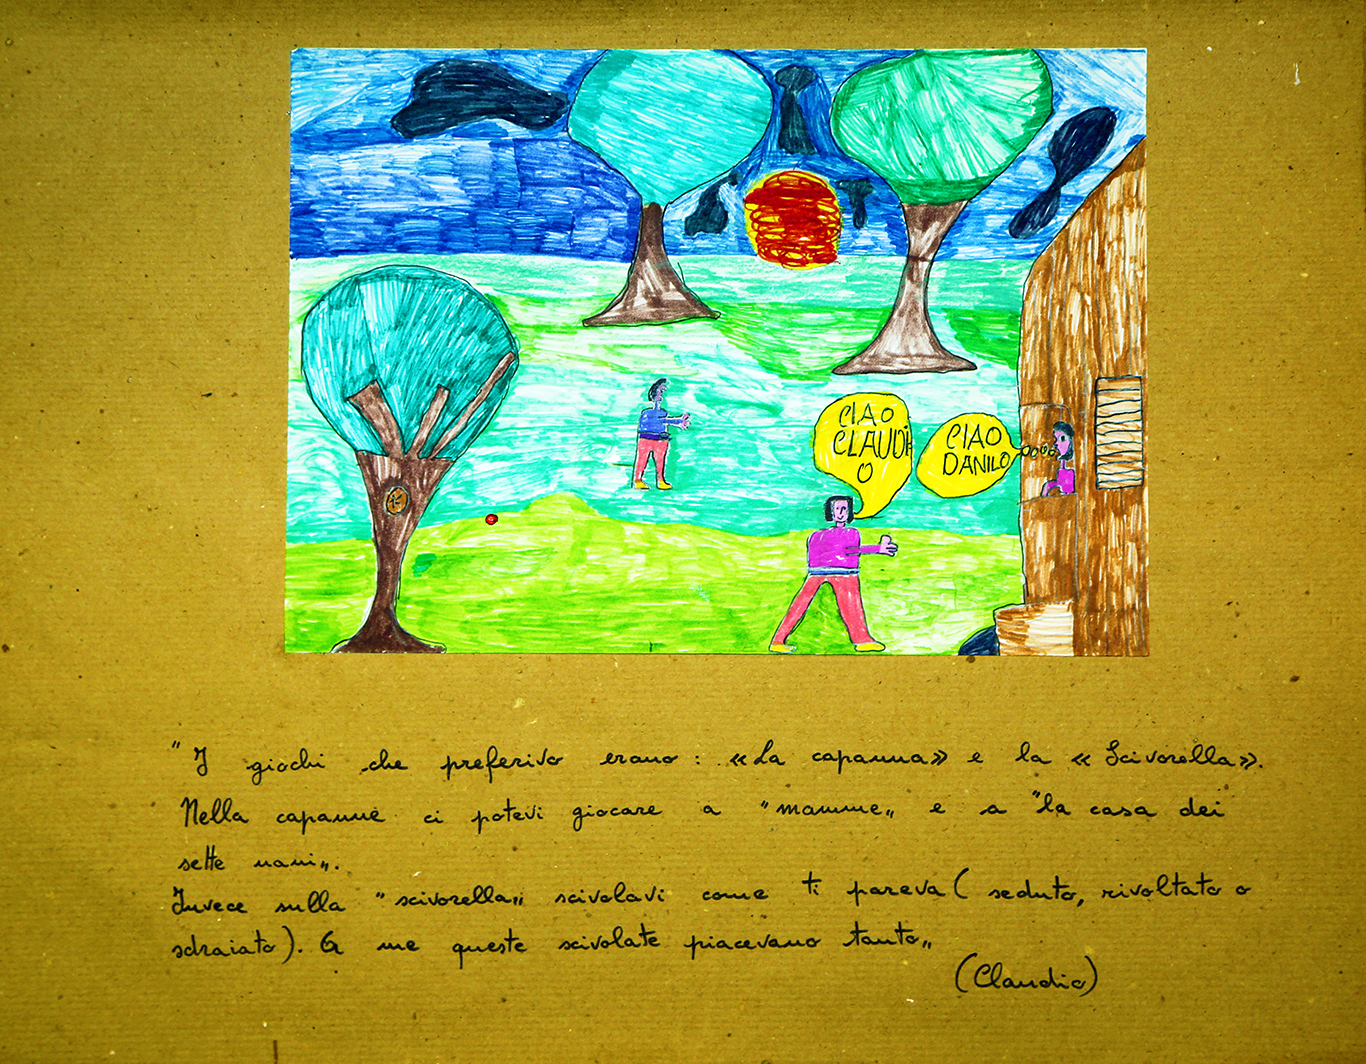 CIAO
CLAUDI
O
CIAO
DANILO
"I giochi che preferivo erano: «La capanna» e la «Scivorella».
Nella capanne ci potevi giocare a "mamme„ e a "la casa dei
sette nani„.
Invece sulla "scivorella„ scivolavi come ti pareva ( seduto, rivoltato o
sdraiato). A me queste scivolate piacevano tanto„
(Claudio)